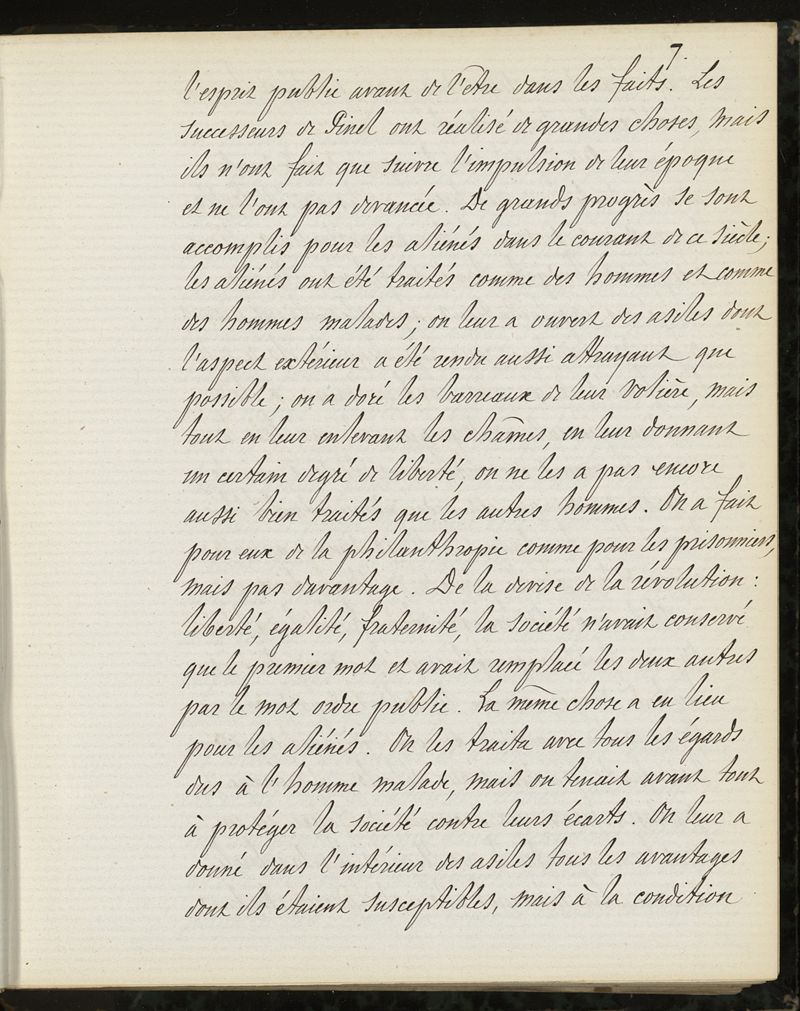 7
l'esprit public avant de l'être dans les faits. Les
successeurs de Pinel ont réalisé de grandes choses, mais
ils n'ont fait que suivre l'impulsion de leur époque
et ne l'ont pas devancée. De grands progrès se sont
accomplis pour les aliénés dans le courant de ce siècle;
les aliénés ont été traités comme des hommes et comme
des hommes malades; on leur a ouvert des asiles dont
l'aspect extérieur a été rendu aussi attrayant que
possible; on a doré les barreaux de leur volière, mais
tout en leur enlevant les chaînes, en leur donnant
un certain degré de liberté, on ne les a pas encore
aussi bien traités que les autres hommes. On a fait
pour eux de la philanthropie comme pour les prisonniers,
mais pas davantage. De la devise de la révolution:
liberté, égalité, fraternité, la société n'avait conservé
que le premier mot et avait remplacé les deux autres
par le mot ordre public. La même chose a eu lieu
pour les aliénés. On les traita avec tous les égards
dus à l'homme malade, mais on tenait avant tout
à protéger la société contre leurs écarts. On leur a
donné dans l'intérieur des asiles tous les avantages
dont ils étaient susceptibles, mais à la condition